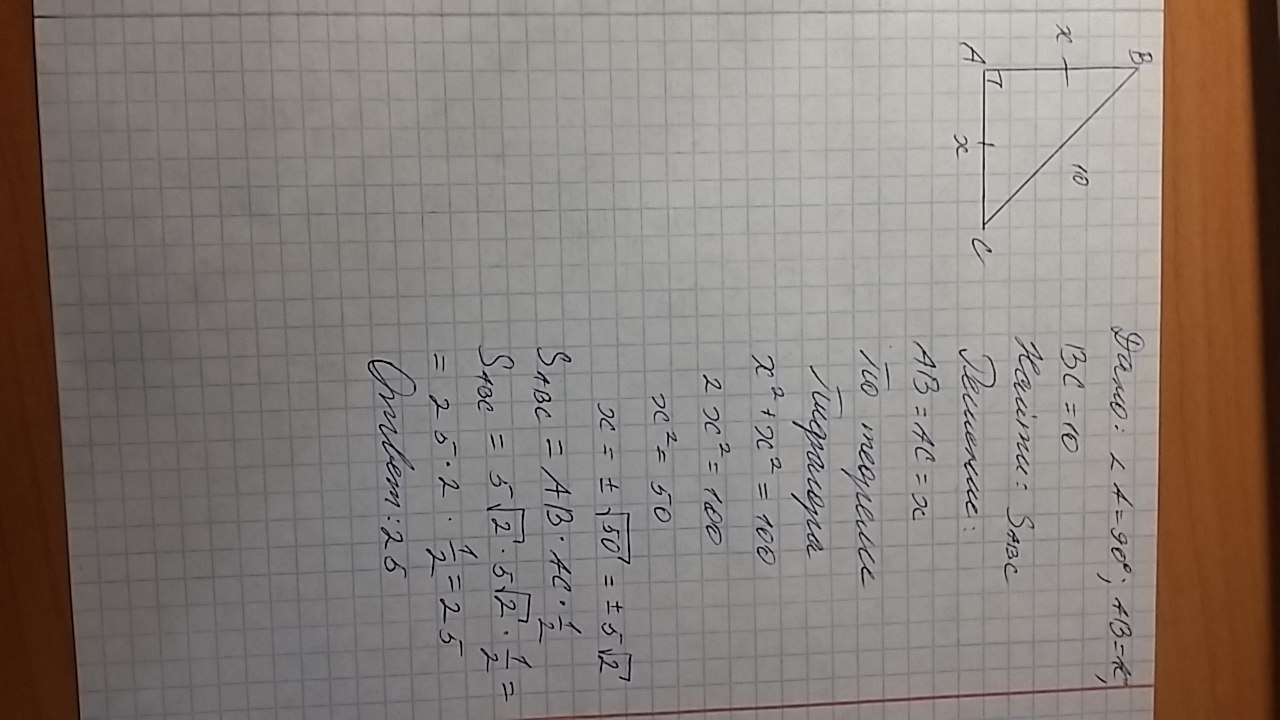 B
x
10
A
x
C
Дано: ∠A=90°; AB=
BC=10
Найти: S_ABC
Решение:
AB=AC=x
По теореме
Пифагора
x²+x²=100
2x²=100
x²=50
x=±√50=±5√2
S_ABC=AB·AC·1/2
S_ABC=5√2·5√2·1/2=
=25·2·1/2=25
Ответ:25